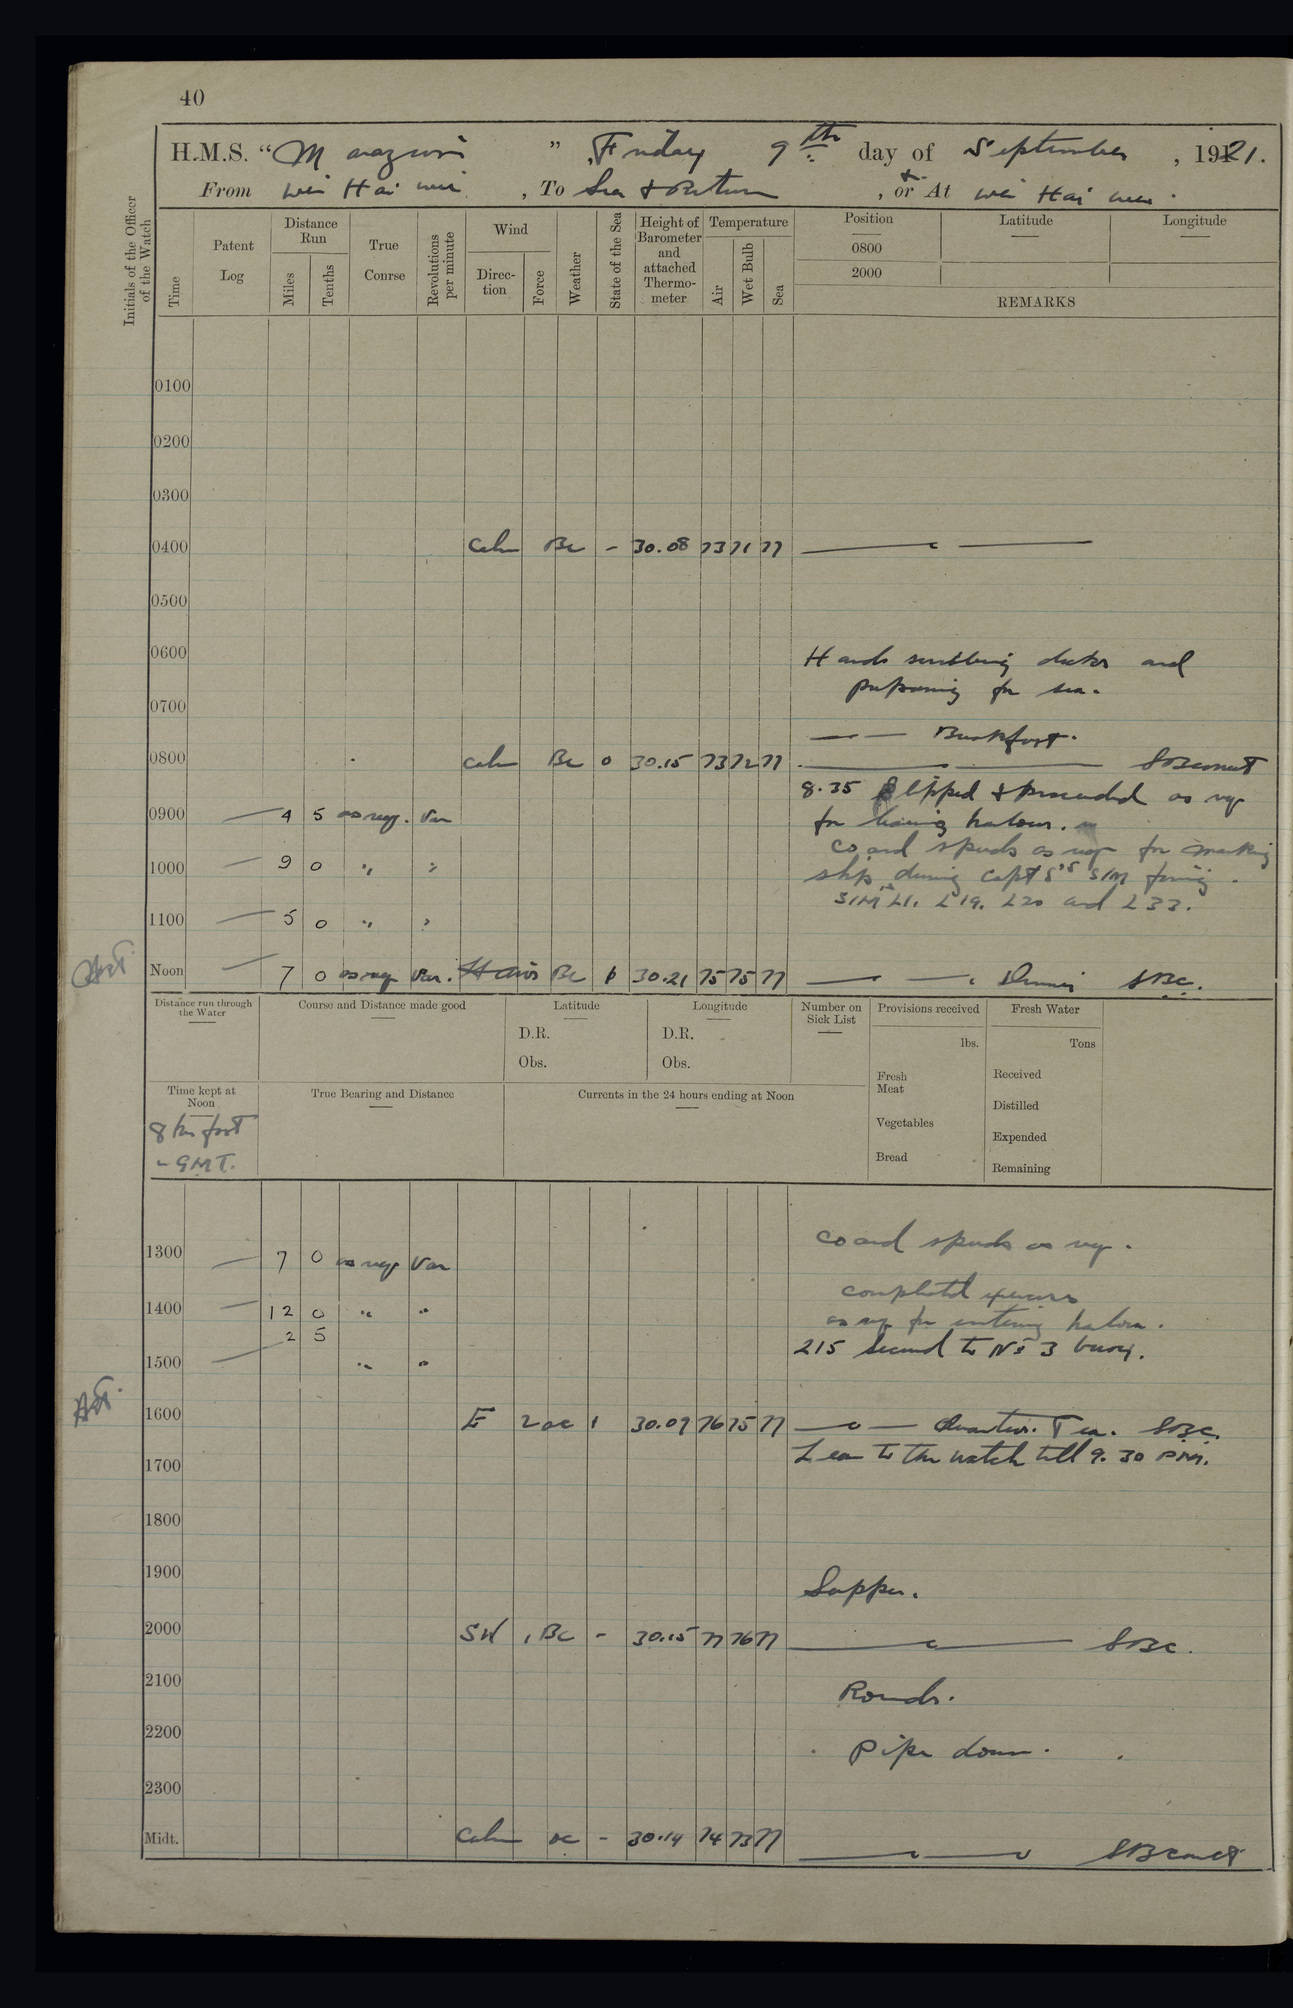 40
H.M.S. "Marazion", Friday 9th day of September, 1921.
From Wei Hai Wei, To Sea & Return, or At Wei Hai Wei.
Initials of the Officer of the Watch
Time
Patent Log
Distance Run
Miles
Tenths
True Course
Revolutions per minute
Wind
Direction
Force
Weather
State of the Sea
Height of Barometer and attached Thermometer
Temperature
Air
Wet Bulb
Sea
Position Latitude Longitude
0800
2000
REMARKS
0100
0200
0300
0400 Calm Bc - 30.08 73 71 77
0500
0600 Hands scrubbing decks and
preparing for sea.
0700
Breakfast.
0800 calm Bc 0 30.15 73 72 77
8.35 Slipped & proceeded as req
0900 4 5 as req. Var
for leaving harbour.
Co and speeds as req for marking
1000 9 0 " "
ship during Capt S's S/M firing.
S/M L1. L19. L20 and L33.
1100 5 0 " "
Noon 7 0 as req Var. Bc 30.21 75 75 77 Dinner SBC.
Distance run through the Water
Course and Distance made good
Latitude
D.R.
Obs.
Longitude
D.R.
Obs.
Number on Sick List
Provisions received
lbs.
Fresh Meat
Vegetables
Bread
Fresh Water
Tons
Received
Distilled
Expended
Remaining
Time kept at Noon
8 hrs fast
GMT.
True Bearing and Distance
Currents in the 24 hours ending at Noon
Co and speeds as req.
1300 7 0 as req Var
completed
1400 12 0 " "
as req for entering harbour.
2 5
215 Secured to No 3 buoy.
1500 " "
1600 E 2 oc 1 30.07 76 75 77 Quarters. Tea. SBC.
Leave to the watch till 9.30 PM.
1700
1800
1900
Supper.
2000 SW 1 Bc - 30.15 77 76 77 SBC.
2100
Rounds.
2200
Pipe down.
2300
Midt. Calm oc - 30.14 74 73 77